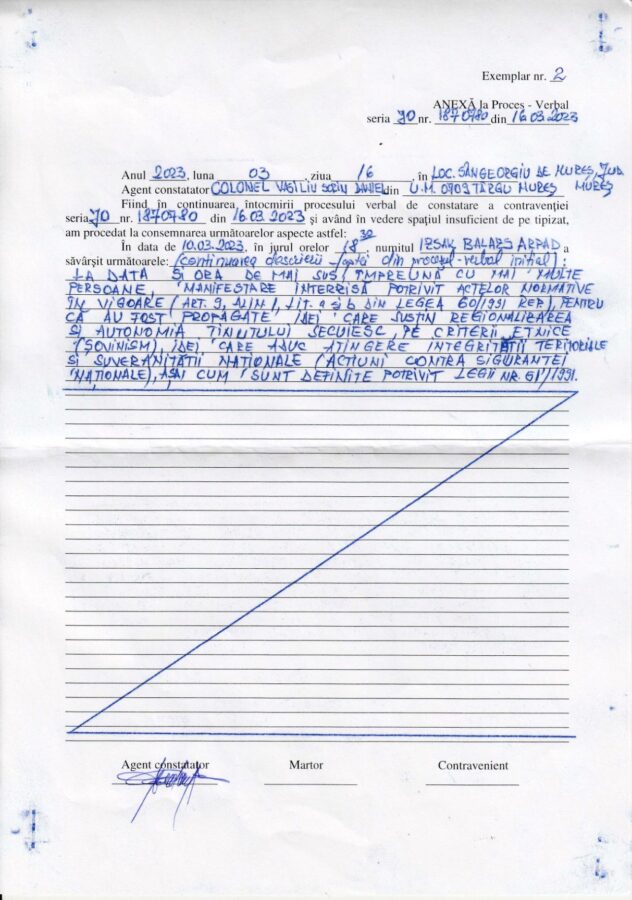 Exemplar nr. 2
ANEXĂ la Proces - Verbal
seria JO nr. 1870780 din 16.03.2023
Anul 2023, luna 03, ziua 16, în LOC. SÂNGEORGIU DE MUREȘ, JUD. MUREȘ
Agent constatator COLONEL VASILIU SORIN DANIEL din U.M. 0903 TÂRGU MUREȘ
Fiind în continuarea întocmirii procesului verbal de constatare a contravenției
seria JO nr. 1870780 din 16.03.2023 și având în vedere spațiul insuficient de pe tipizat,
am procedat la consemnarea următoarelor aspecte astfel:
În data de 10.03.2023, în jurul orelor 18, numitul IZSAK BALAZS ARPAD a
săvârșit următoarele: (continuarea descrierii faptă din procesul-verbal inițial):
LA DATA ȘI ORA DE MAI SUS ÎMPREUNĂ CU MAI MULTE
PERSOANE, MANIFESTARE INTERZISĂ POTRIVIT ACTELOR NORMATIVE
ÎN VIGOARE (ART. 9, ALIN 1, LIT. a și b DIN LEGEA 60/1991 REP), PENTRU
CĂ AU FOST PROPAGATE IDEI CARE SUSȚIN REGIONALIZAREA
ȘI AUTONOMIA ȚINUTULUI SECUIESC, PE CRITERII ETNICE
(ȘOVINISM), IDEI CARE ADUC ATINGERE INTEGRITĂȚII TERITORIALE
ȘI SUVERANITĂȚII NAȚIONALE (ACȚIUNI CONTRA SIGURANȚEI
NAȚIONALE), AȘA CUM SUNT DEFINITE POTRIVIT LEGII NR. 51/1991.
Agent constatator Martor Contravenient